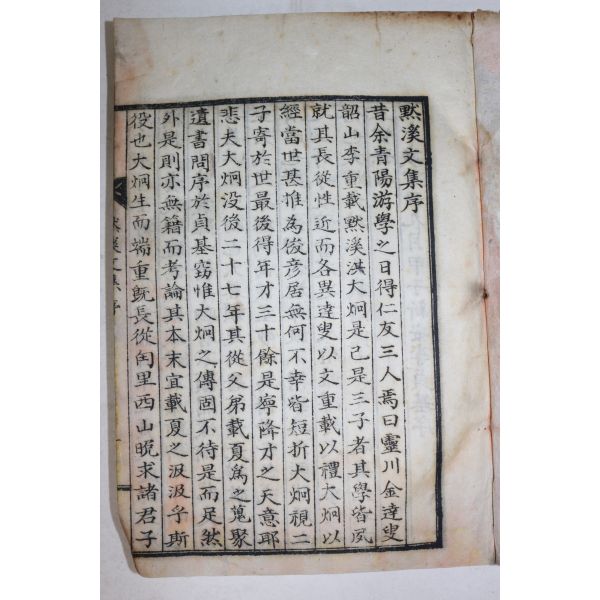 默溪文集序
昔余青陽游學之日得仁友三人焉曰靈川金達叟
韶山李重載默溪洪大炯是已是三子者其學皆夙
就其長從性近而各異達叟以文重載以禮大炯以
經當世甚推為俊彦居無何不幸皆短折大炯視二
子寄於世最後得年才三十餘是寧降才之天意耶
悲夫大炯沒後二十七年其從父弟載夏為之蒐聚
遺書問序於貞基竊惟大炯之傳固不待是而足然
外是則亦無籍而考論其本末宜載夏之汲汲乎斯
役也大炯生而端重旣長從闰里西山晩求諸君子
默溪文集序